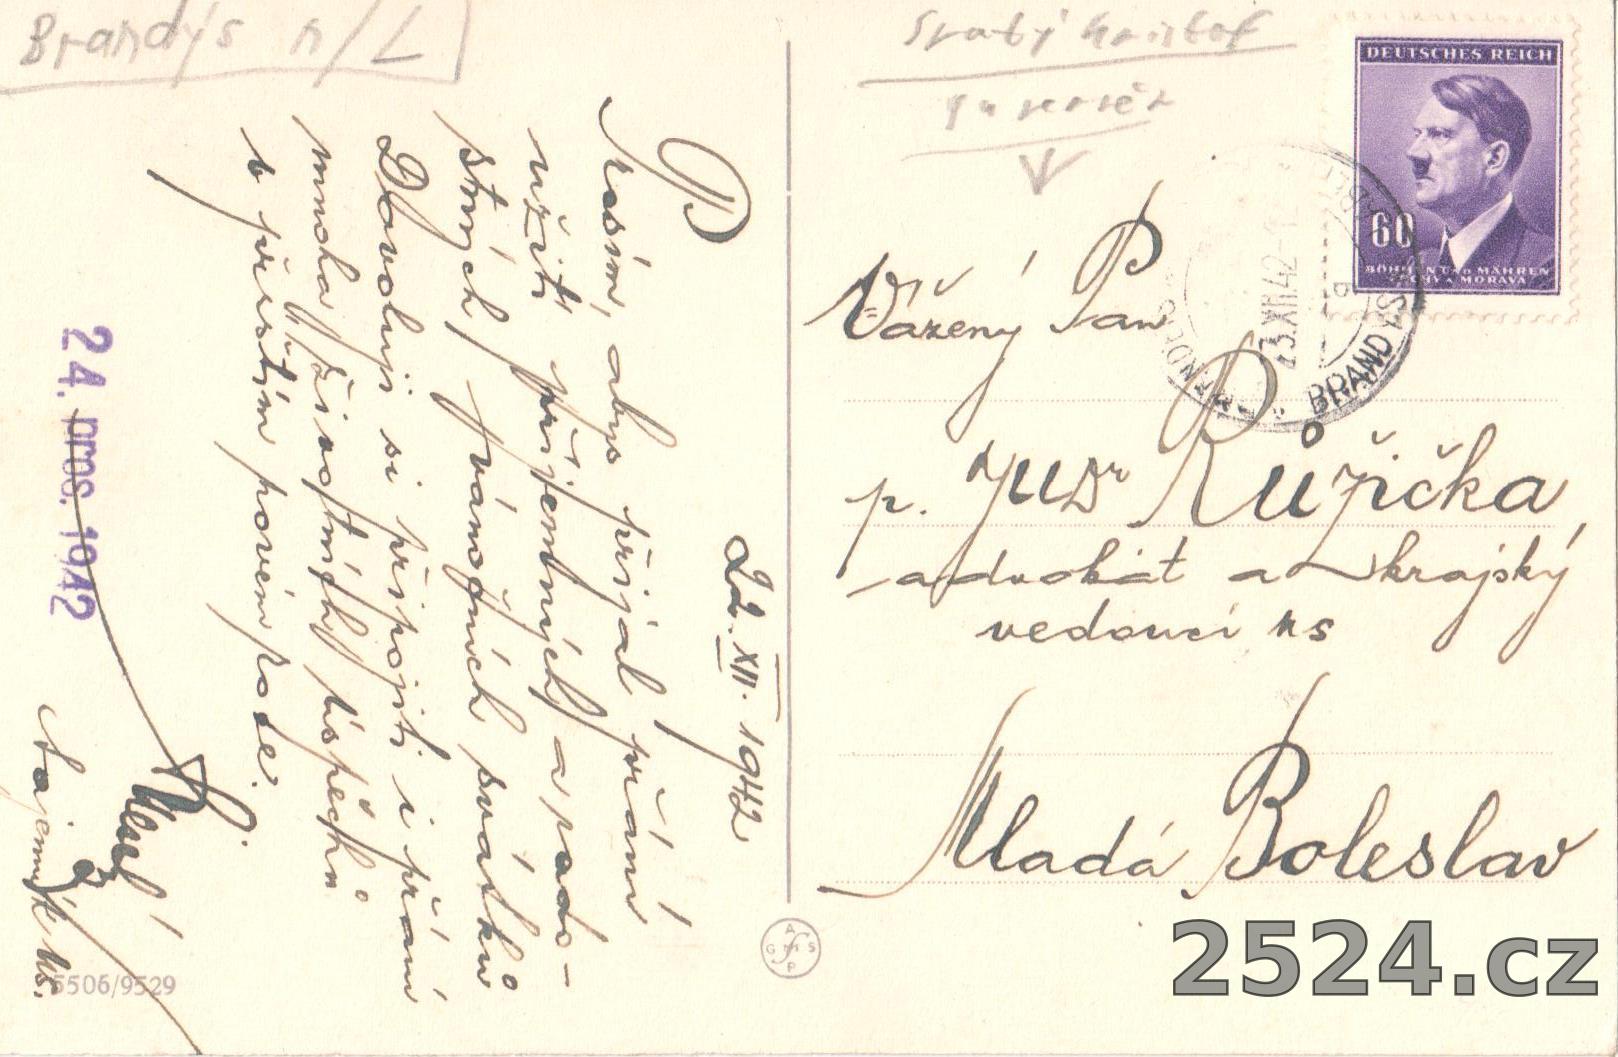 Brandýs n/L
Svatý Krištof
DEUTSCHES REICH
60
BÖHMEN UND MÄHREN
ČECHY A MORAVA
23.XII.42-1
BRAND
22. XII. 1942
Prosím, abys přijal přání
užití příjemných a rado-
stných vánočních svátků.
Dovoluji si připojiti i přání
mnoha životních úspěchů
v příštím novém roce.
Tajemník NS.
24. pros. 1942
Vážený Pan
p. JUDr Růžička
advokát a krajský
vedoucí NS
Mladá Boleslav
5506/9529
GMS
2524.cz